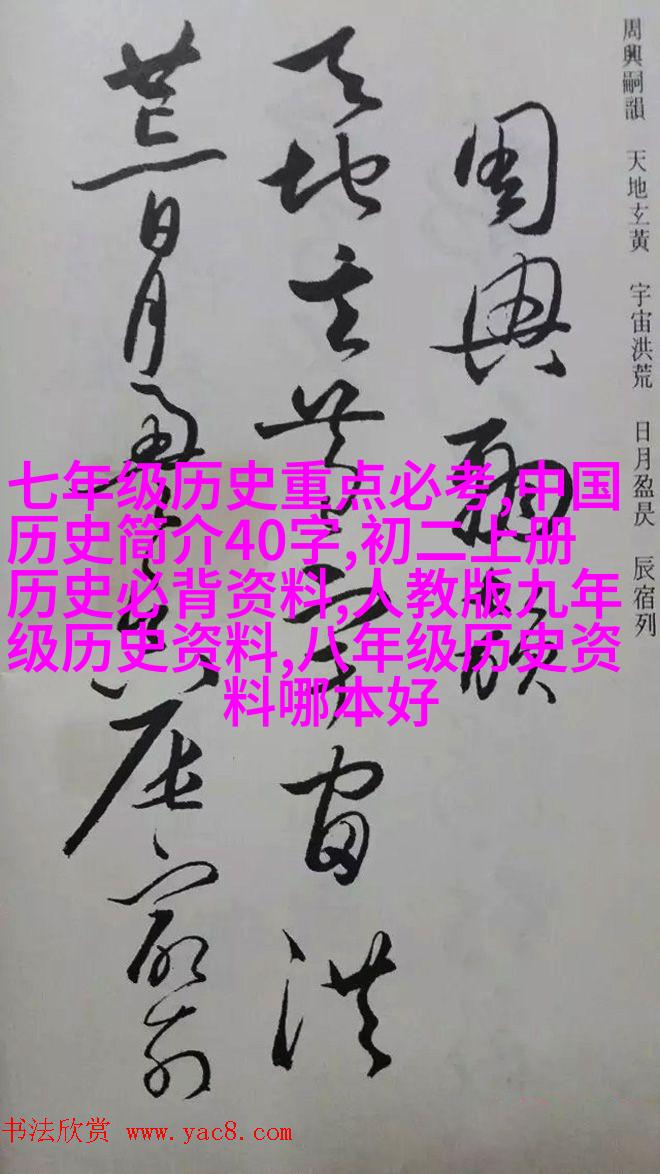 周興嗣韻 天地玄黃 宇宙洪荒 日月盈昃 辰宿列
周興嗣韻
天地玄黃宇宙洪
荒日月盈昃辰宿列
七年级历史重点必考,中国
历史简介40字,初二上册
历史必背资料,人教版九年
级历史资料,八年级历史资
料哪本好
书法欣赏 www.yac8.com